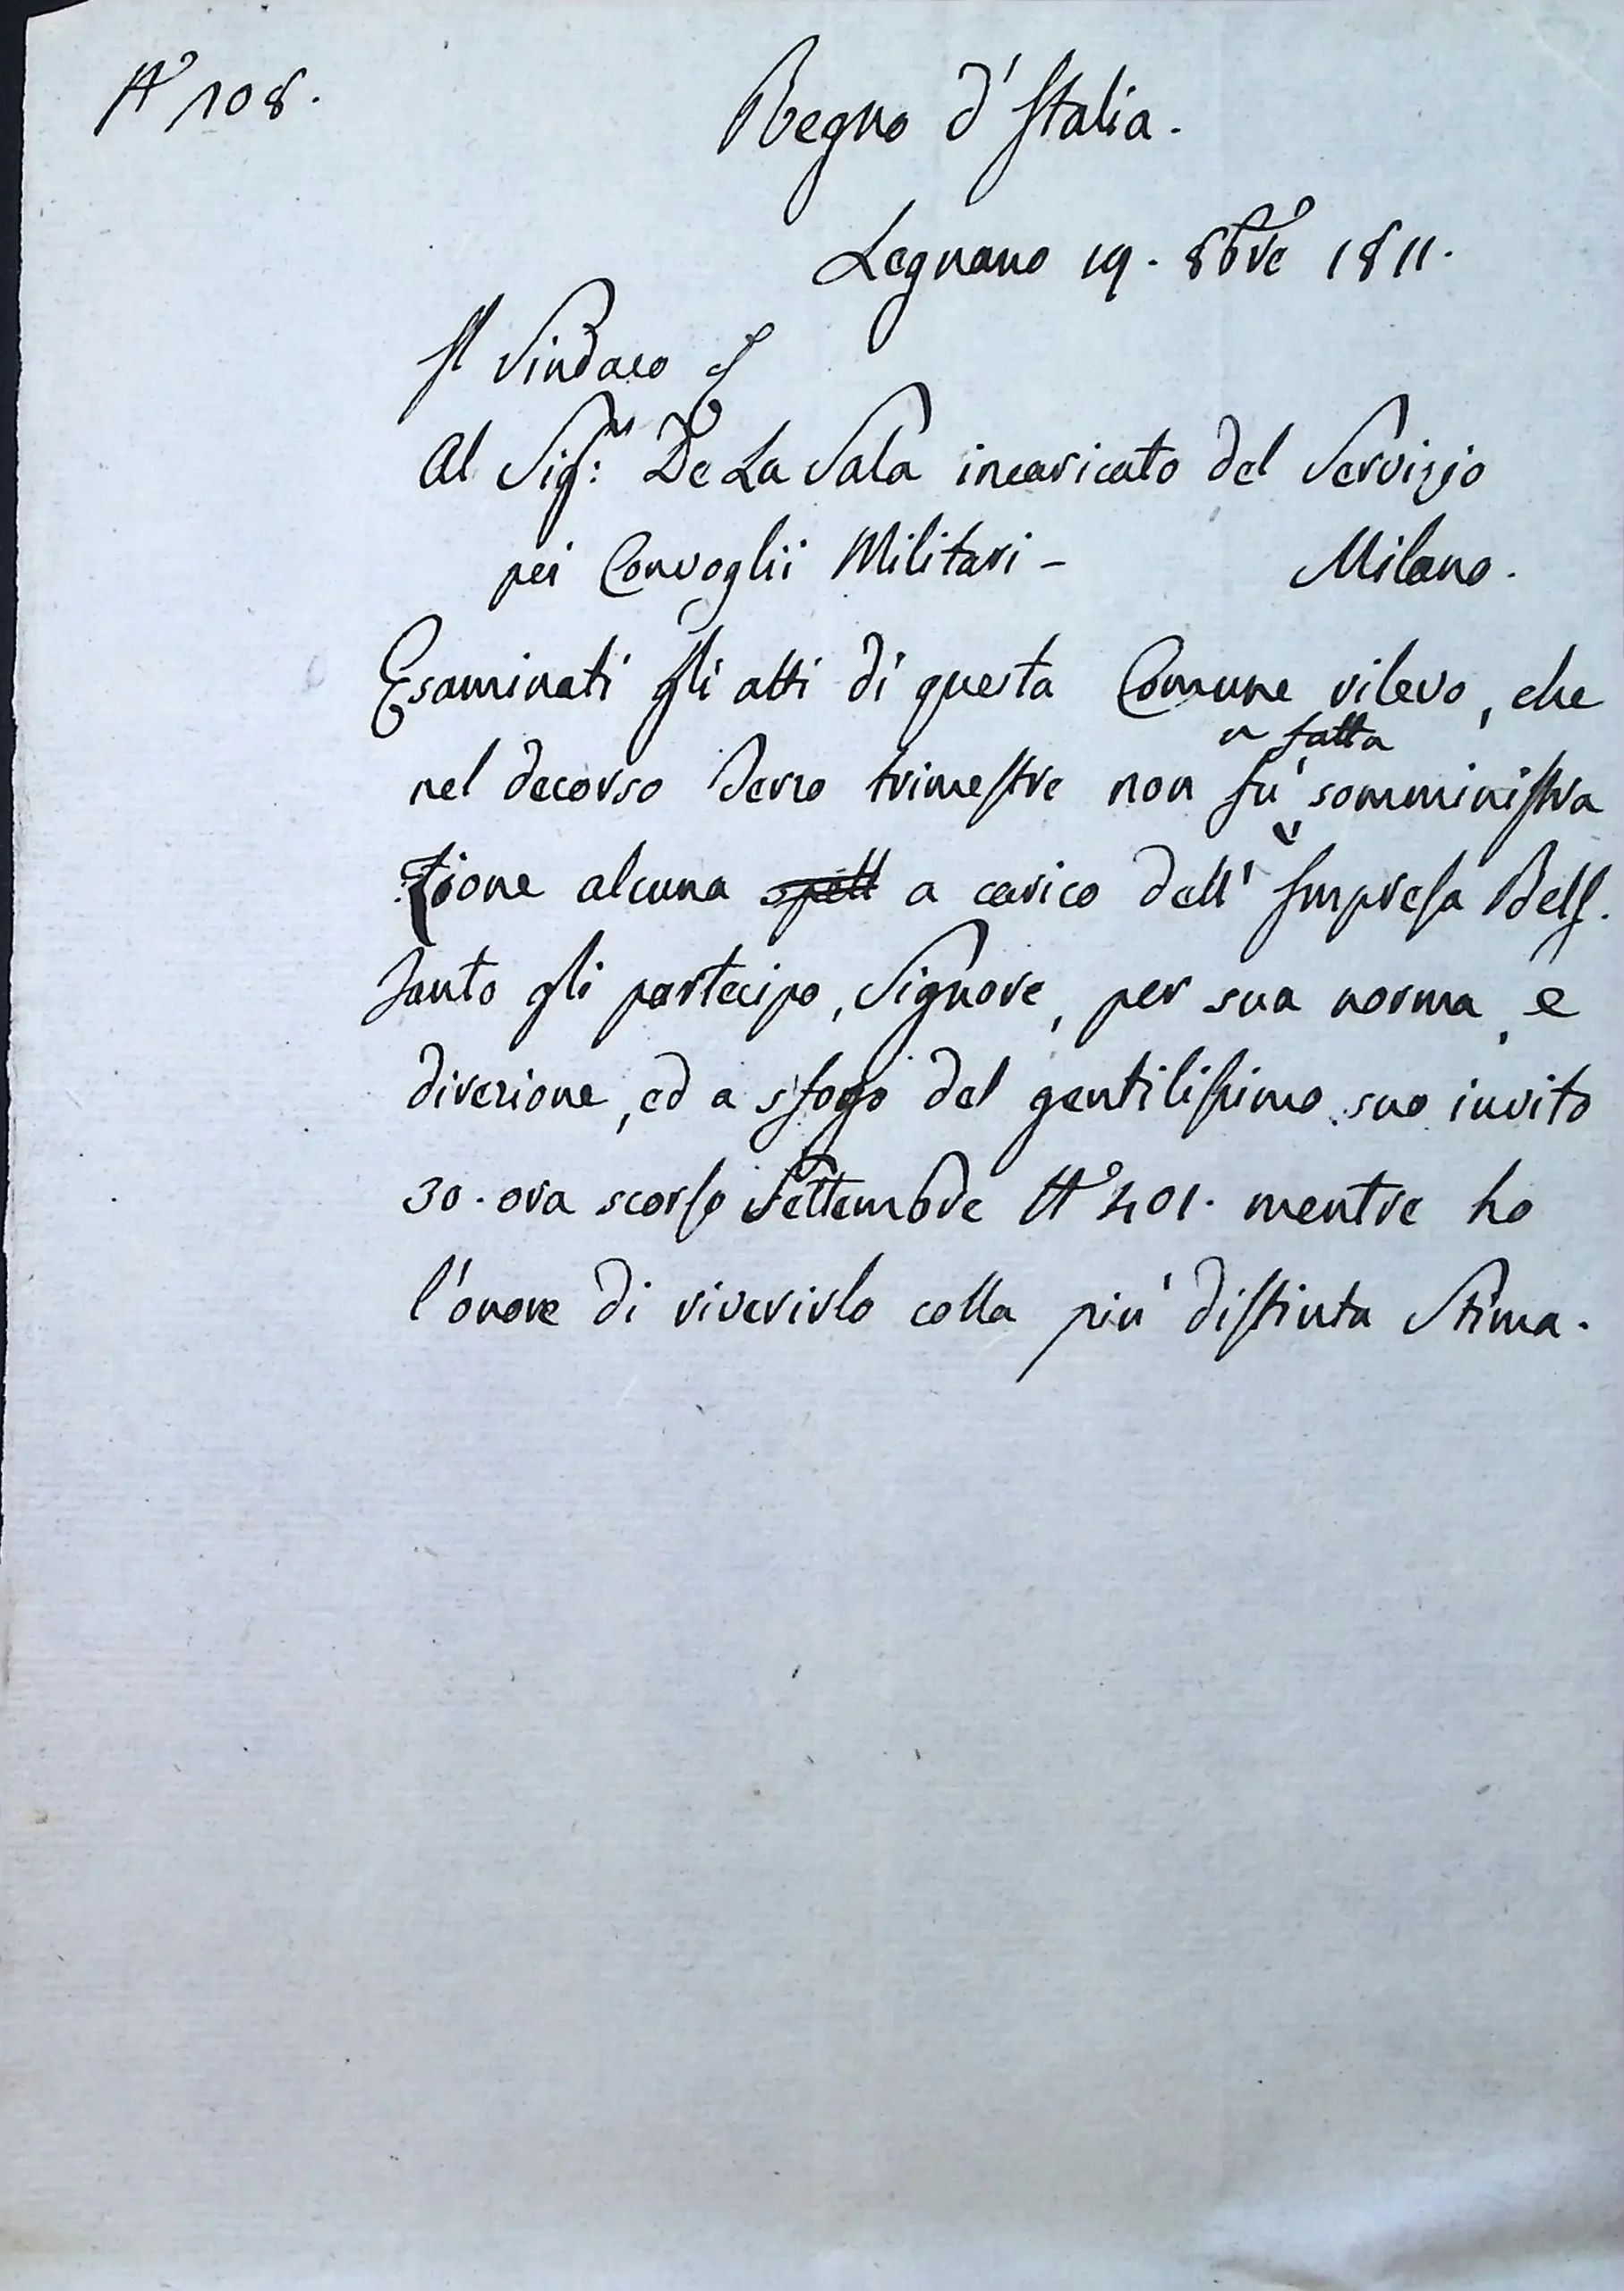 N° 108.
Regno d'Italia.
Legnano 19. 8bre 1811.
Il Sindaco
Al Sig.r De La Sala incaricato del Servizio
pei Convoglii Militari - Milano.
Esaminati gli atti di questa Comune rilevo, che
fatta
nel decorso Terzo trimestre non fù somministra
zione alcuna a carico dell' Impresa Belf.
Tanto gli partecipo, Signore, per sua norma, e
direzione, ed a sfogo del gentilissimo suo invito
30. ora scorso Settembre N° 401. mentre ho
l'onore di riverirlo colla più distinta Stima.